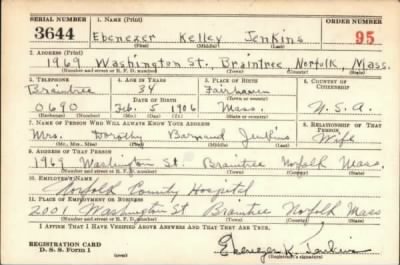 SERIAL NUMBER 1. NAME (Print) ORDER NUMBER
3644 Ebenezer Kelley Jenkins 95
(First) (Middle) (Last)
2. ADDRESS (Print)
1969 Washington St., Braintree Norfolk, Mass.
(Number and street or R. F. D. number) (Town) (County) (State)
3. TELEPHONE 4. AGE IN YEARS 5. PLACE OF BIRTH 6. COUNTRY OF CITIZENSHIP
Braintree 34 Fairhaven
DATE OF BIRTH (Town or county)
0690 Feb. 5 1906 Mass. U.S.A.
(Exchange) (Number) (Mo.) (Day) (Yr.) (State or country)
7. NAME OF PERSON WHO WILL ALWAYS KNOW YOUR ADDRESS 8. RELATIONSHIP OF THAT PERSON
Mrs. Dorothy Barnard Jenkins Wife
(Mr., Mrs., Miss) (First) (Middle) (Last)
9. ADDRESS OF THAT PERSON
1969 Washington St. Braintree Norfolk Mass.
(Number and street or R. F. D. number) (Town) (County) (State)
10. EMPLOYER'S NAME
Norfolk County Hospital
11. PLACE OF EMPLOYMENT OR BUSINESS
2001 Washington St Braintree Norfolk Mass
(Number and street or R. F. D. number) (Town) (County) (State)
I AFFIRM THAT I HAVE VERIFIED ABOVE ANSWERS AND THAT THEY ARE TRUE.
REGISTRATION CARD
D. S. S. Form 1 Ebenezer K. Jenkins
(over) (Registrant's signature)